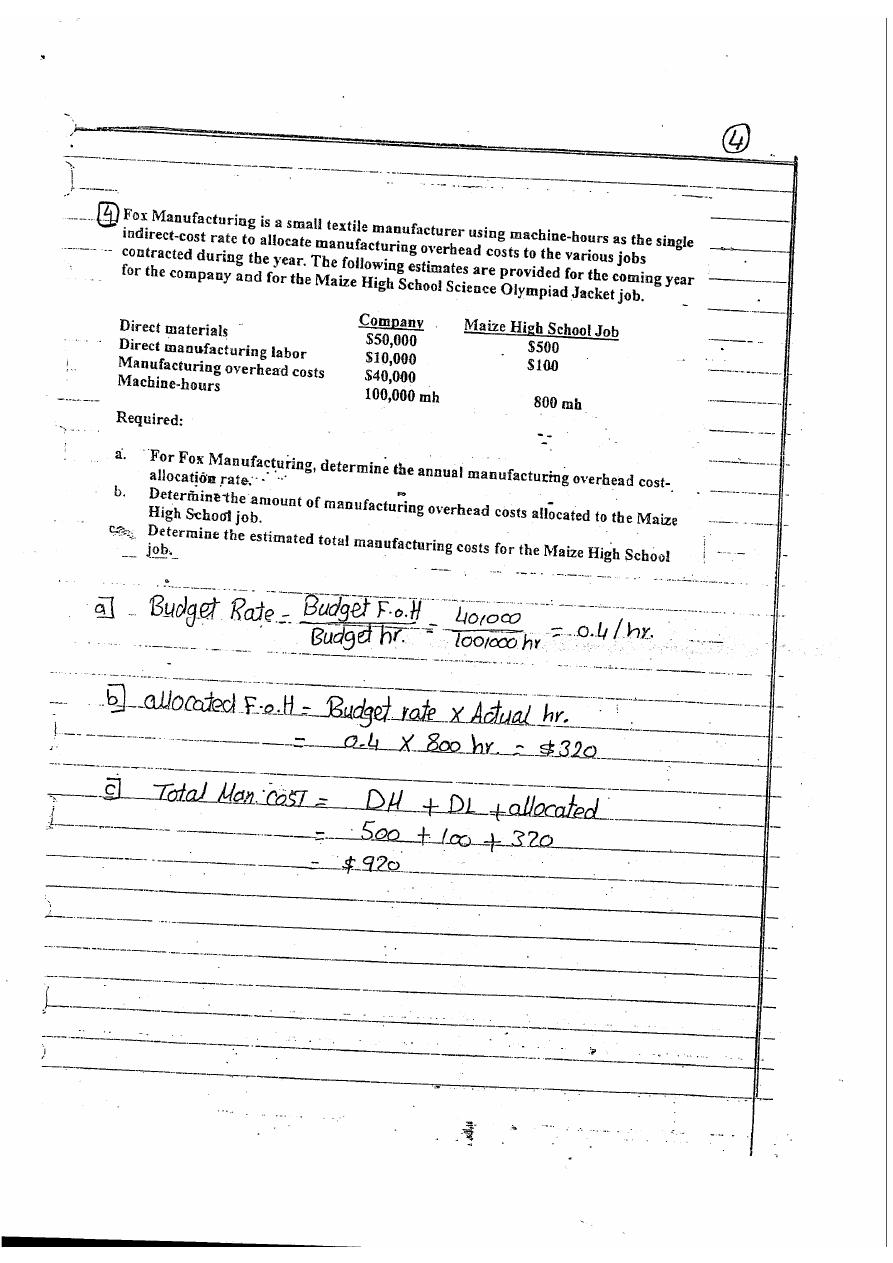 4
4 Fox Manufacturing is a small textile manufacturer using machine-hours as the single
indirect-cost rate to allocate manufacturing overhead costs to the various jobs
contracted during the year. The following estimates are provided for the coming year
for the company and for the Maize High School Science Olympiad Jacket job.
Company Maize High School Job
Direct materials $50,000 $500
Direct manufacturing labor $10,000 $100
Manufacturing overhead costs $40,000
Machine-hours 100,000 mh 800 mh
Required:
a. For Fox Manufacturing, determine the annual manufacturing overhead cost-
allocation rate.
b. Determine the amount of manufacturing overhead costs allocated to the Maize
High School job.
Determine the estimated total manufacturing costs for the Maize High School
job.
a] - Budget Rate = Budget F.o.H / Budget hr. = 40,000 / 100,000 hr = 0.4 / hr.
b] allocated F.o.H = Budget rate x Actual hr.
= 0.4 x 800 hr. = $320
c] Total Man. cost = DH + DL + allocated
= 500 + 100 + 320
= $920